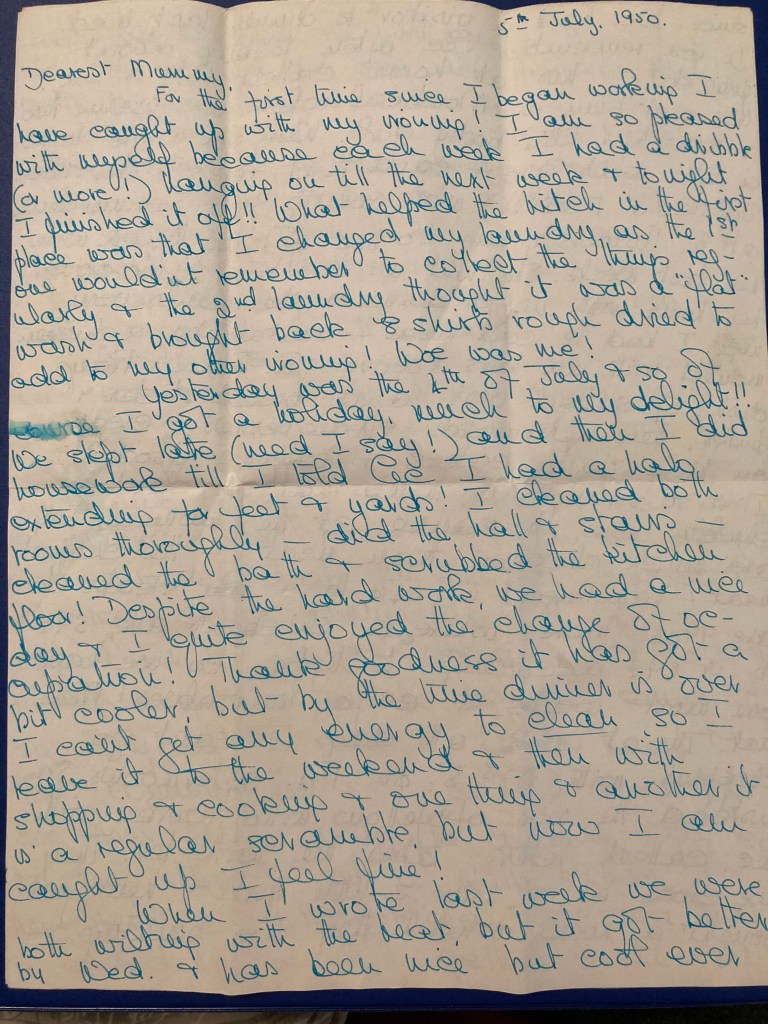 5th July. 1950.
Dearest Mummy,
For the first time since I began working I
have caught up with my ironing! I am so pleased
with myself because each week I had a dribble
(or more!) hanging on till the next week & tonight
I finished it off!! What helped the hitch in the first
place was that I changed my laundry as the 1st
one wouldn't remember to collect the things reg-
ularly & the 2nd laundry thought it was a "flat"
wash & brought back 8 shirts rough dried to
add to my other ironing! Woe was me!
Yesterday was the 4th of July & so of
course I got a holiday, much to my delight!!
We slept late (need I say!) and then I did
housework till I told Cee I had a halo
extending for feet & yards! I cleaned both
rooms thoroughly — did the hall & stairs —
cleaned the bath & scrubbed the kitchen
floor! Despite the hard work, we had a nice
day & I quite enjoyed the change of oc-
cupation! Thank goodness it has got a
bit cooler, but by the time dinner is over
I can't get any energy to clean so I
leave it to the weekend & then with
shopping & cooking & one thing & another it
is a regular scramble, but now I am
caught up I feel fine!
When I wrote last week we were
both wilting with the heat, but it got better
by Wed. & has been nice but cool ever